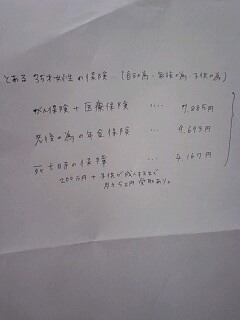 とある 35才女性の保険. (自分の為・老後の為・子供の為)
がん保険 + 医療保険 ‥‥ 7,885円
老後の為の年金保険 ‥‥ 9,695円
死亡時の保障 ‥‥ 4,167円
200万円 + 子供が成人するまで
月々5万円 受取あり。